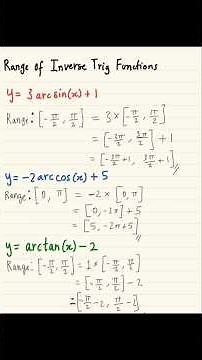 Range of Inverse Trig Functions
y = 3 arcsin(x) + 1
Range: [-π/2, π/2] = 3 × [-π/2, π/2]
= [-3π/2, 3π/2] + 1
= [-3π/2+1, 3π/2+1]
y = -2 arccos(x) + 5
Range: [0, π] = -2 × [0, π]
= [0, -2π] + 5
= [5, -2π+5]
y = arctan(x) - 2
Range: [-π/2, π/2] = 1 × [-π/2, π/2]
= [-π/2, π/2] - 2
= [-π/2 - 2, π/2 - 2]